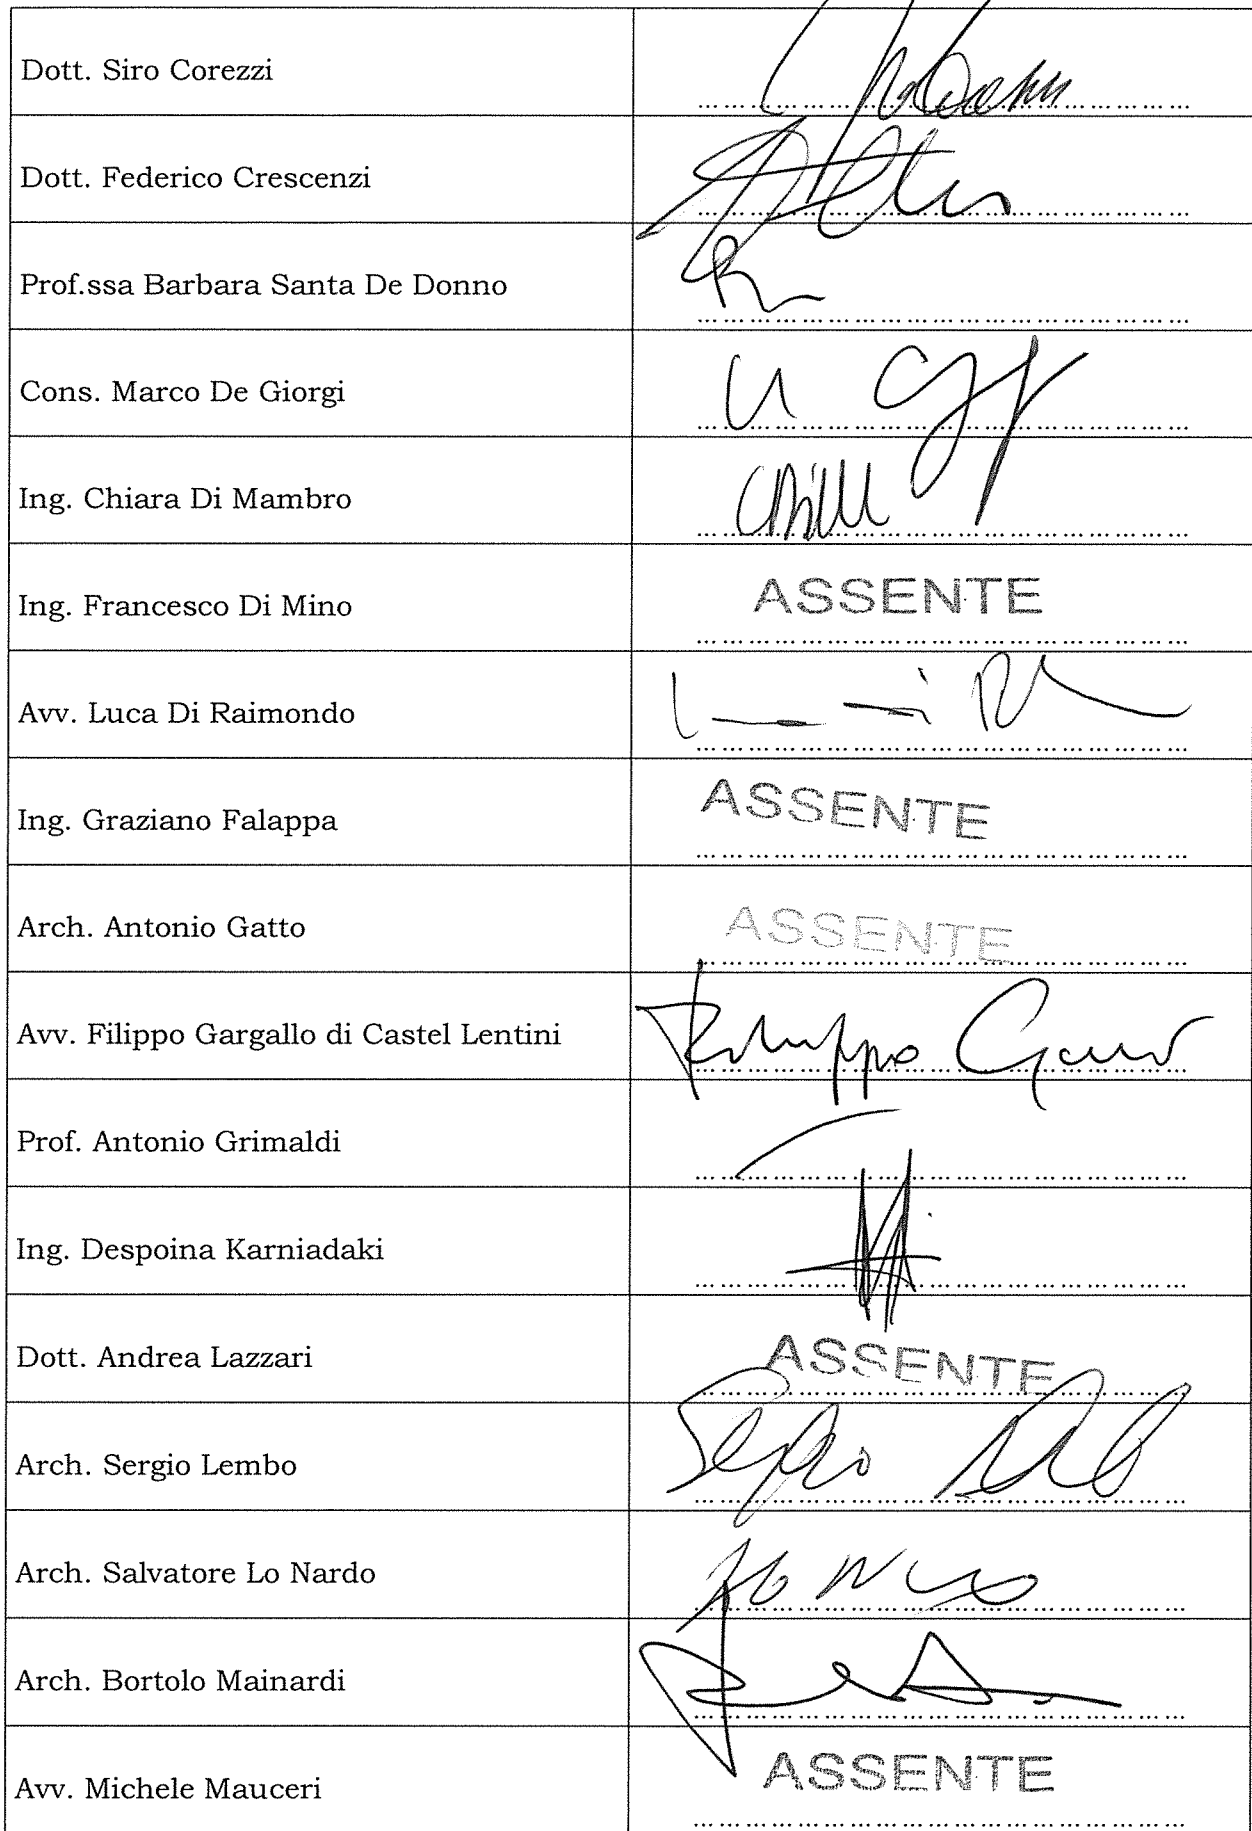 Dott. Siro Corezzi
Dott. Federico Crescenzi
Prof.ssa Barbara Santa De Donno
Cons. Marco De Giorgi
Ing. Chiara Di Mambro
Ing. Francesco Di Mino ASSENTE
Avv. Luca Di Raimondo
Ing. Graziano Falappa ASSENTE
Arch. Antonio Gatto ASSENTE
Avv. Filippo Gargallo di Castel Lentini
Prof. Antonio Grimaldi
Ing. Despoina Karniadaki
Dott. Andrea Lazzari ASSENTE
Arch. Sergio Lembo
Arch. Salvatore Lo Nardo
Arch. Bortolo Mainardi
Avv. Michele Mauceri ASSENTE